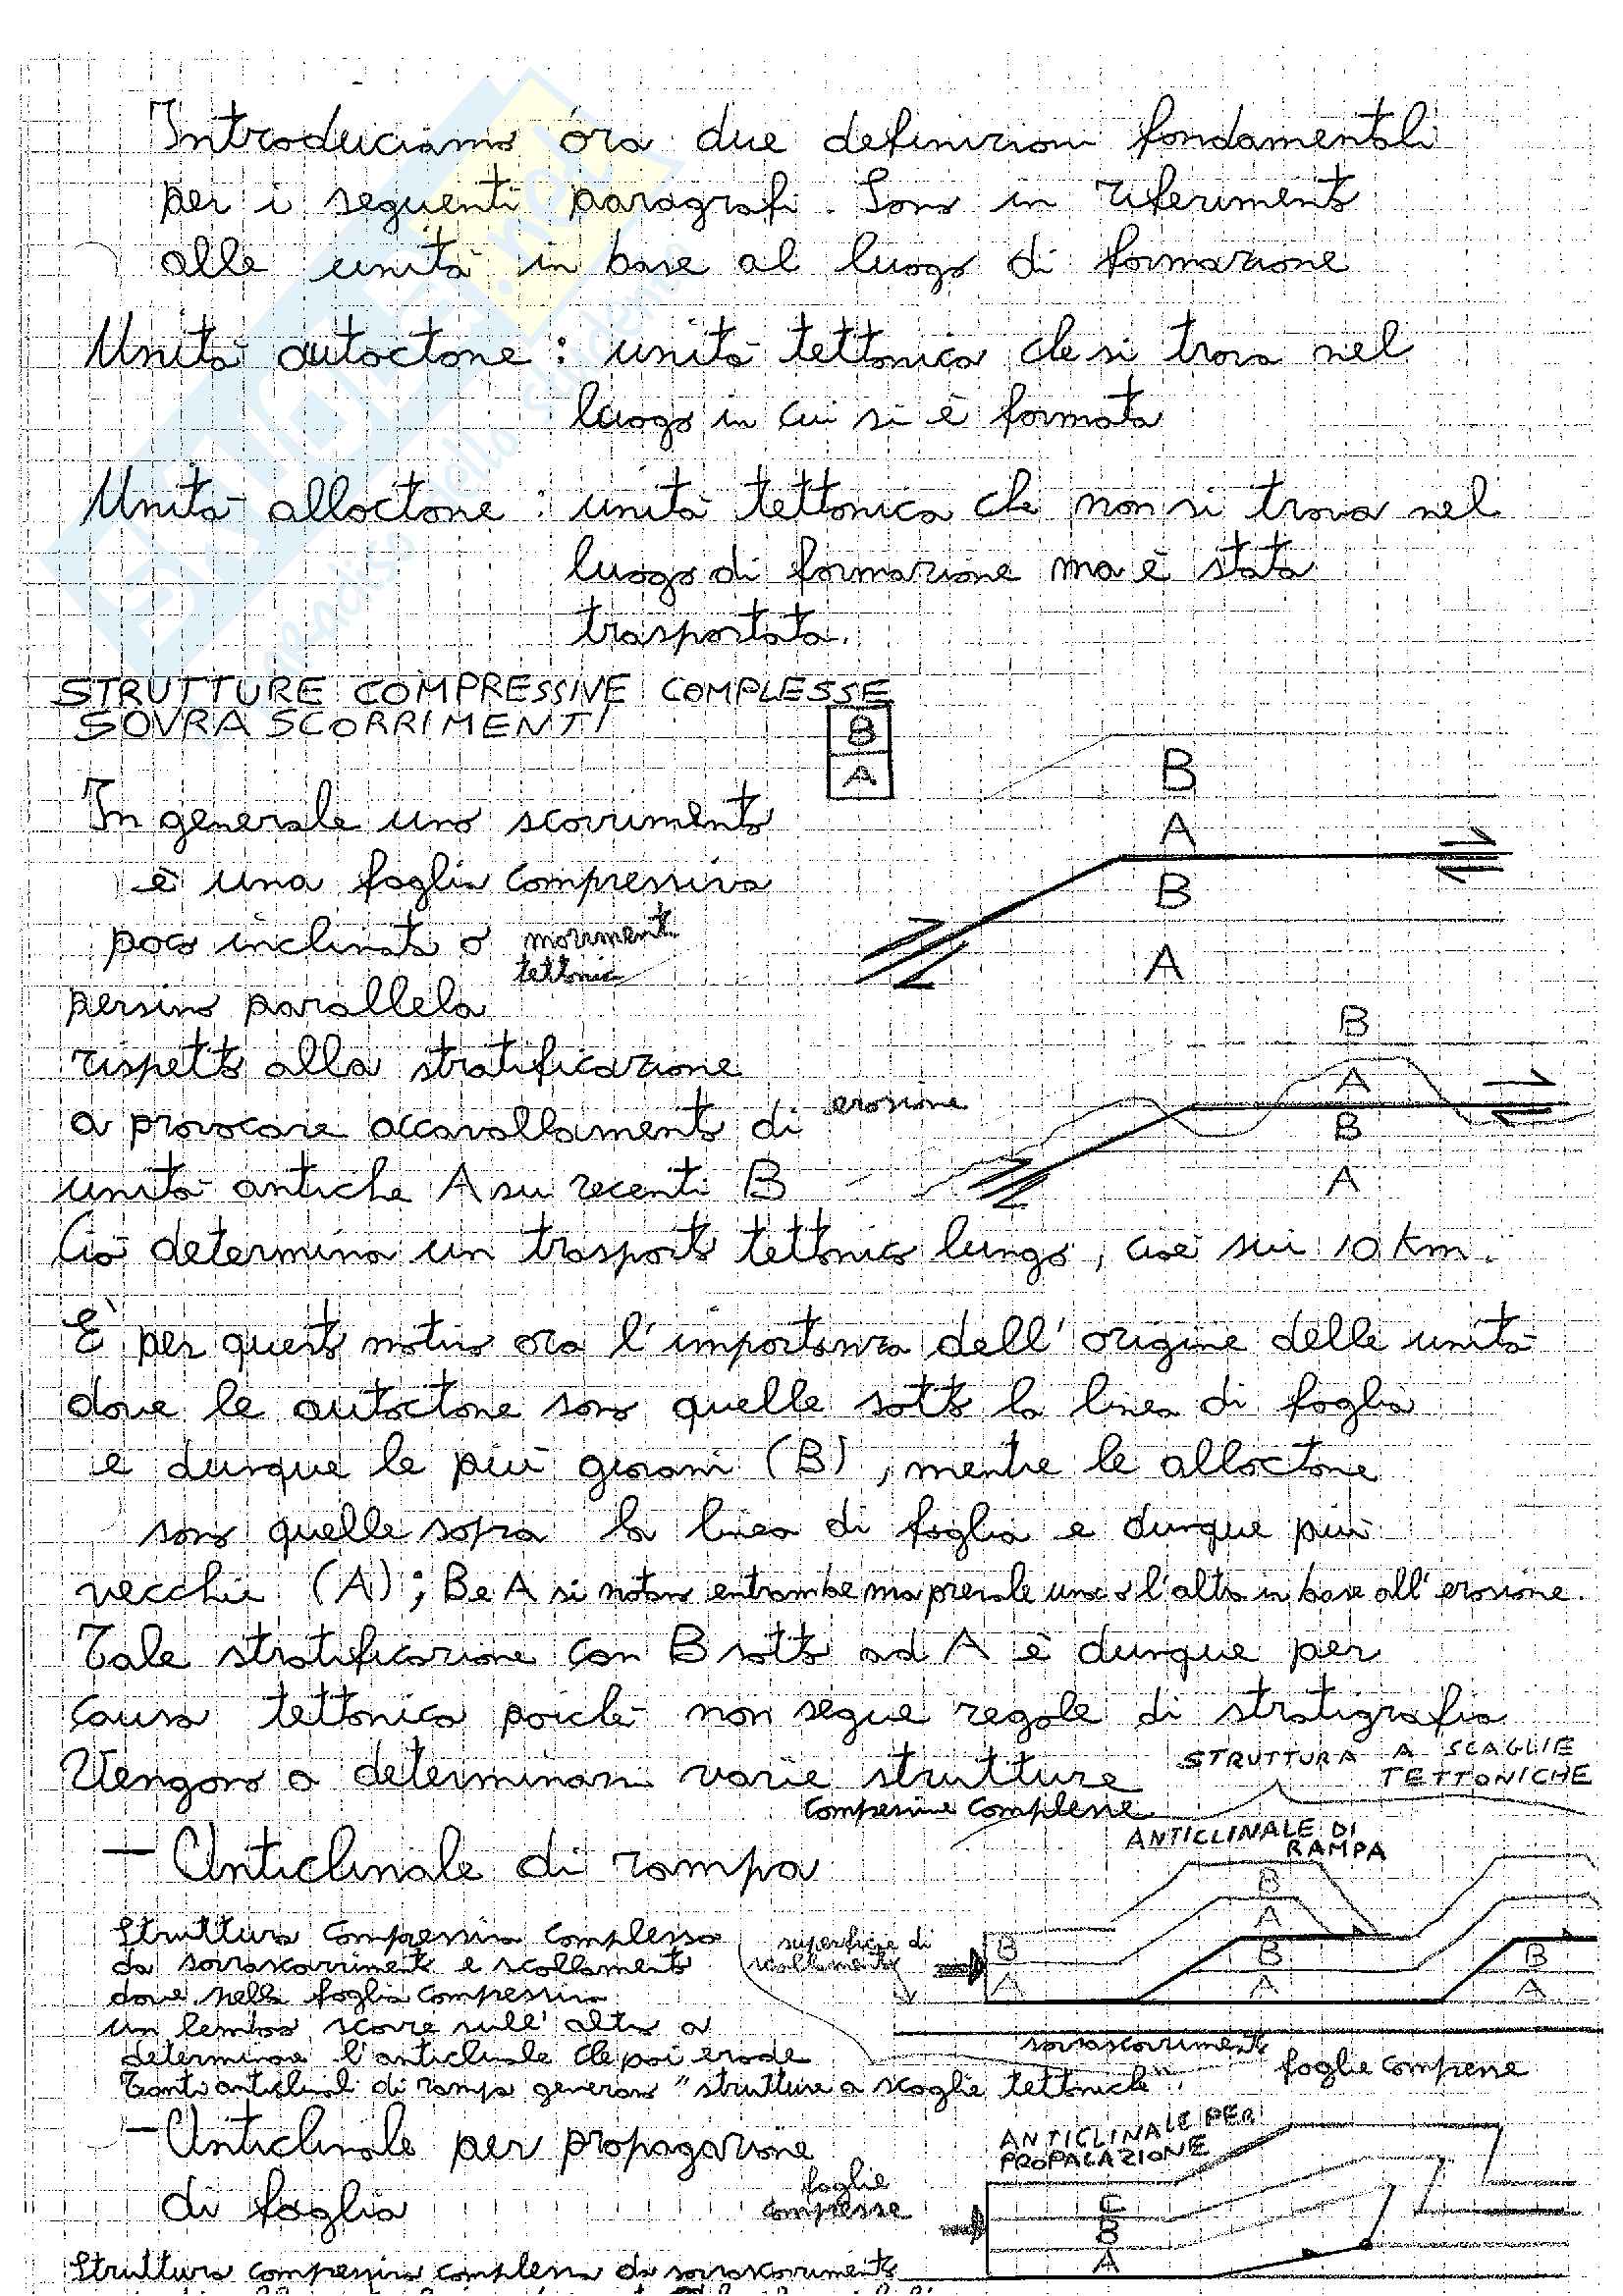 Introduciamo ora due definizioni fondamentali
per i seguenti paragrafi. Sono in riferimento
alle unità in base al luogo di formazione
Unità autoctone : unità tettonica che si trova nel
luogo in cui si è formata
Unità alloctone : unità tettonica che non si trova nel
luogo di formazione ma è stata
trasportata.
STRUTTURE COMPRESSIVE COMPLESSE
SOVRASCORRIMENTI
B
A
B
A
B
A
In generale uno scorrimento
è una faglia compressiva
poco inclinata o
movimenti
tettonici
persino parallela
rispetto alla stratificazione
a provocare accavallamento di
erosione
unità antiche A su recenti B
B
A
B
A
Ciò determina un trasporto tettonico lungo, cioè sui 10 km.
È per questo motivo ora l'importanza dell'origine delle unità
dove le autoctone sono quelle sotto la linea di faglia
e dunque le più giovani (B), mentre le alloctone
sono quelle sopra la linea di faglia e dunque più
vecchie (A); B e A si notano entrambe ma prevale una o l'altra in base all'erosione.
Tale stratificazione con B sotto ad A è dunque per
causa tettonica poichè non segue regole di stratigrafia
Vengono a determinarsi varie strutture
compressive complesse
STRUTTURA A SCAGLIE
TETTONICHE
ANTICLINALE DI
RAMPA
- Anticlinale di rampa
Struttura compressiva complessa
da sovrascorrimento e scollamento
dove nella faglia compressiva
un lembo scorre sull'altro a
determinare l'anticlinale che poi erode
Tanti anticlinali di rampa generano "strutture a scaglie tettoniche".
superficie di
scollamento
B
A
B
A
B
A
B
A
sovrascorrimento
faglie compresse
- Anticlinale per propagazione
di faglia
ANTICLINALE PER
PROPAGAZIONE
faglie
compresse
C
B
A
Struttura compressiva complessa da sovrascorrimento